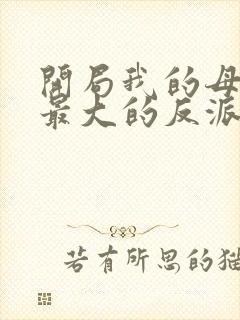 開局我的母
最大的反派
若有所思的猫